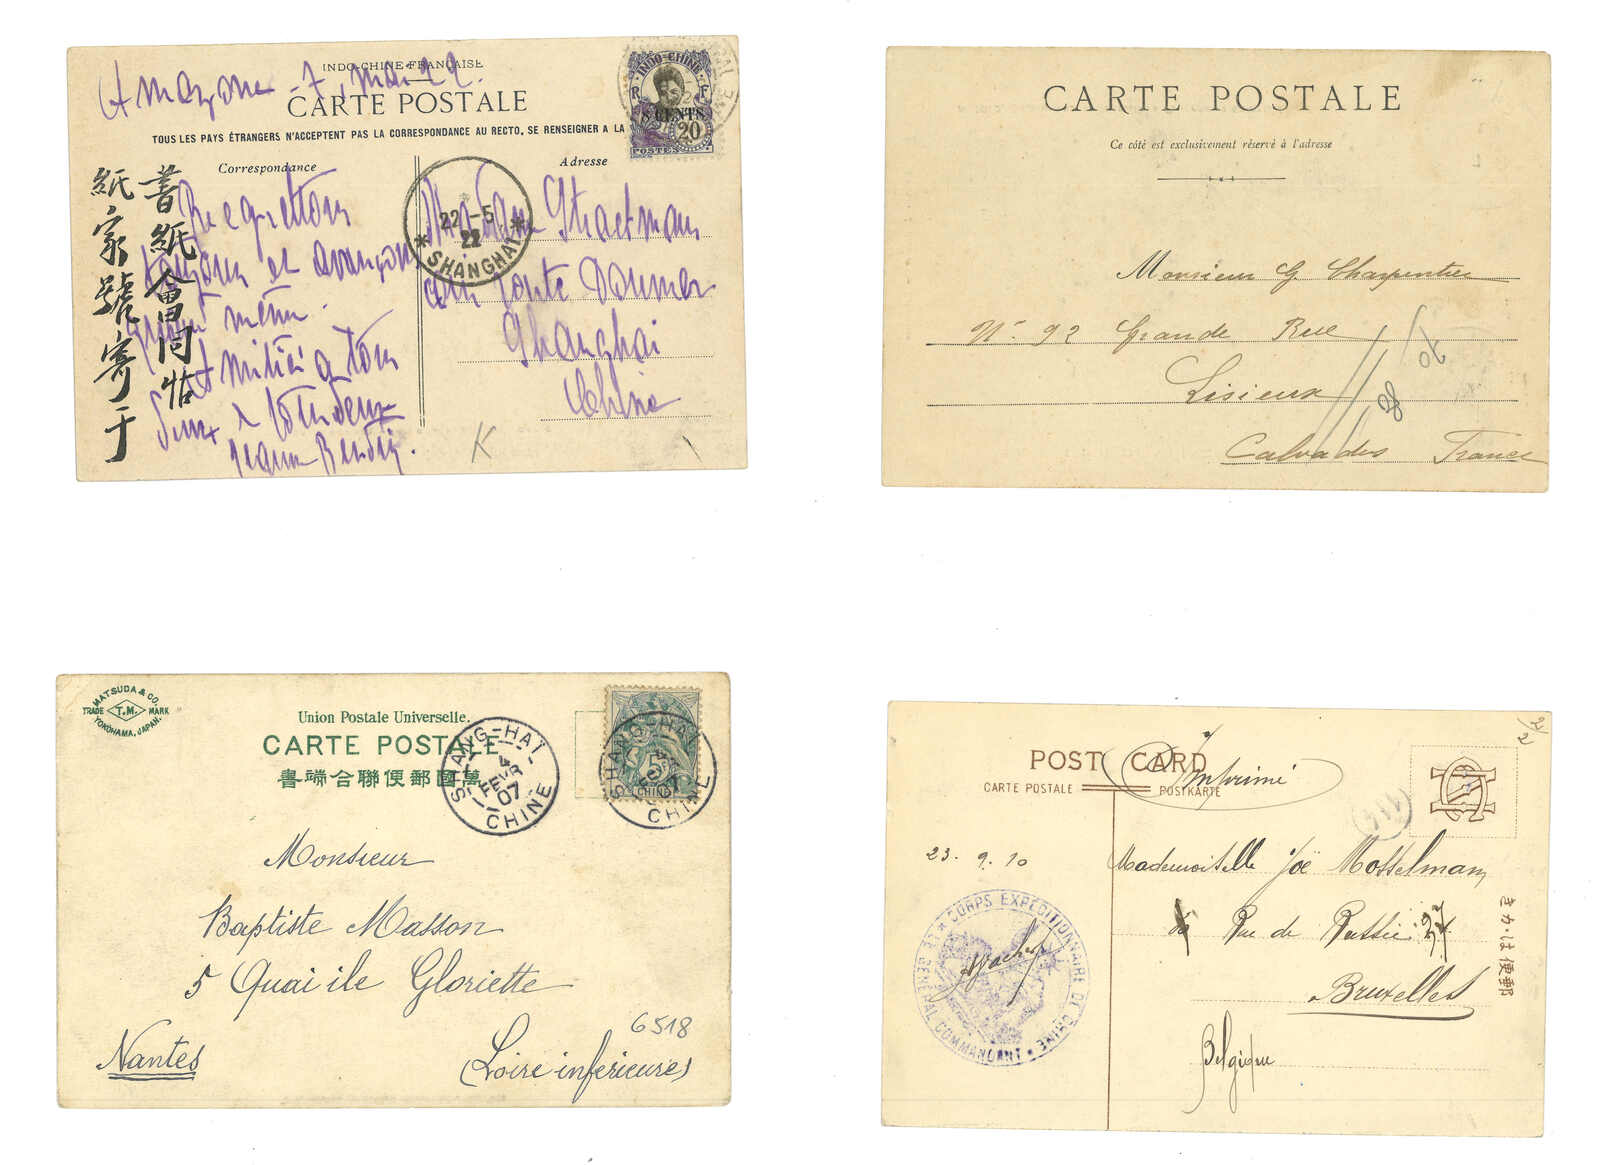 INDO-CHINE FRANÇAISE
Amazone - 7 mai 22.
CARTE POSTALE
TOUS LES PAYS ÉTRANGERS N'ACCEPTENT PAS LA CORRESPONDANCE AU RECTO, SE RENSEIGNER A LA
Correspondance
Adresse
INDO-CHINE
R F
8 CENTS
20
POSTES
22-5
22
* SHANGHAI *
書紙會同帖
紙家號寄于
toujours et
Amitiés a tous
Madame
Doumer
Shanghai
Chine
K
CARTE POSTALE
Ce côté est exclusivement réservé à l'adresse
Monsieur G Charpentier
No 92 Grande Rue
Lisieux
Calvados France
MATSUDA & CO.
TRADE T.M. MARK
YOKOHAMA, JAPAN.
Union Postale Universelle.
CARTE POSTALE
書端合聯便郵國萬
SHANG-HAÏ
4
FEVR
07
CHINE
5
CHINE
SHANG-HAÏ
07
CHINE
Monsieur
Baptiste Masson
5 Quai ile Gloriette
6518
Nantes
(Loire inférieure)
2/2
POST CARD
Imprimé
CARTE POSTALE
POSTKARTE
23. 9. 10
Mademoiselle Joë Mosselmans
Rue de 37
Bruxelles
Belgique
きかは便郵
CORPS EXPÉDITIONNAIRE DE CHINE * LE GÉNÉRAL COMMANDANT *